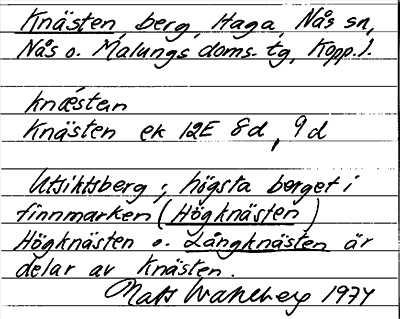 Knästen, berg, Haga, Nås sn,
Nås o. Malungs doms. tg, Kopp. l.
knǽstan
Knästen ek 12E 8d, 9d
Utsiktsberg; högsta berget i
finnmarken (Högknästen)
Högknästen o. Långknästen är
delar av Knästen.
Mats Wahlberg 1974